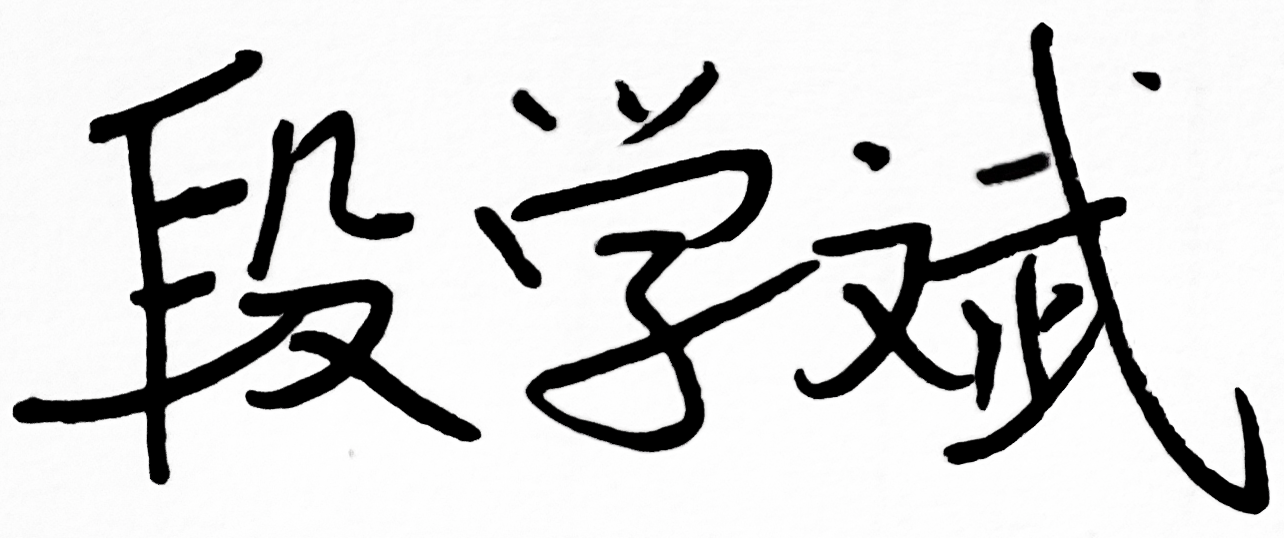 段学斌